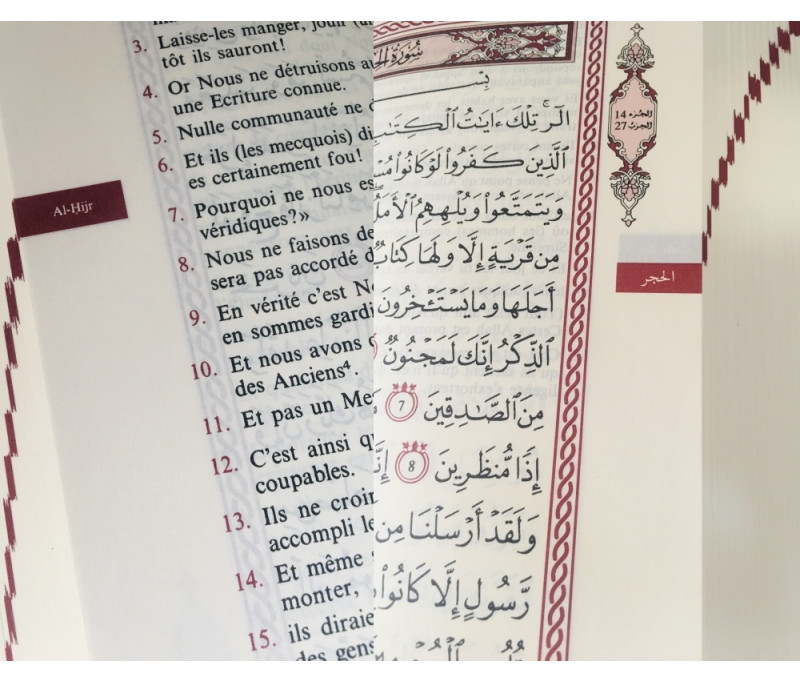 3. Laisse-les manger, jouir
tôt ils sauront!
4. Or Nous ne détruisons
une Ecriture connue.
5. Nulle communauté ne
6. Et ils (les mecquois)
es certainement fou!
7. Pourquoi ne nous
véridiques?»
8. Nous ne faisons
sera pas accordé
9. En vérité c'est
en sommes
10. Et nous avons
des Anciens⁴.
11. Et pas un
12. C'est ainsi
coupables.
13. Ils ne
accompli
14. Et même
monter,
15. ils
des
Al-Ḥijr
سُورَةُ
بِسْـ
الٓر تِلْكَ ءَايَـٰتُ ٱلْكِتَـٰبِ
ٱلَّذِينَ كَفَرُوا۟ لَوْ كَانُوا۟
وَيَتَمَتَّعُوا۟ وَيُلْهِهِمُ ٱلْأَمَلُ
مِن قَرْيَةٍ إِلَّا وَلَهَا كِتَابٌ
أَجَلَهَا وَمَا يَسْتَـْٔخِرُونَ
ٱلذِّكْرُ إِنَّكَ لَمَجْنُونٌ
مِنَ ٱلصَّـٰدِقِينَ 7
إِذًا مُّنظَرِينَ 8
وَلَقَدْ أَرْسَلْنَا مِن
رَّسُولٍ إِلَّا كَانُوا۟
الجزء 14
الحزب 27
الحجر